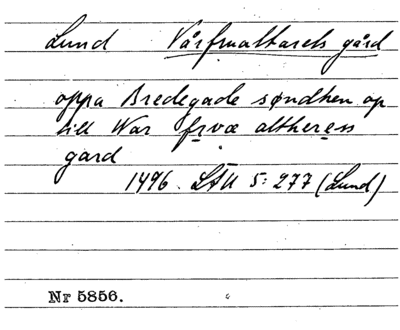 Lund Vårfrualtarets gård
oppa Bredegade søndhen op
till War frvæ altheress
gard
1496. LÄU 5: 277 (Lund)
Nr 5856.